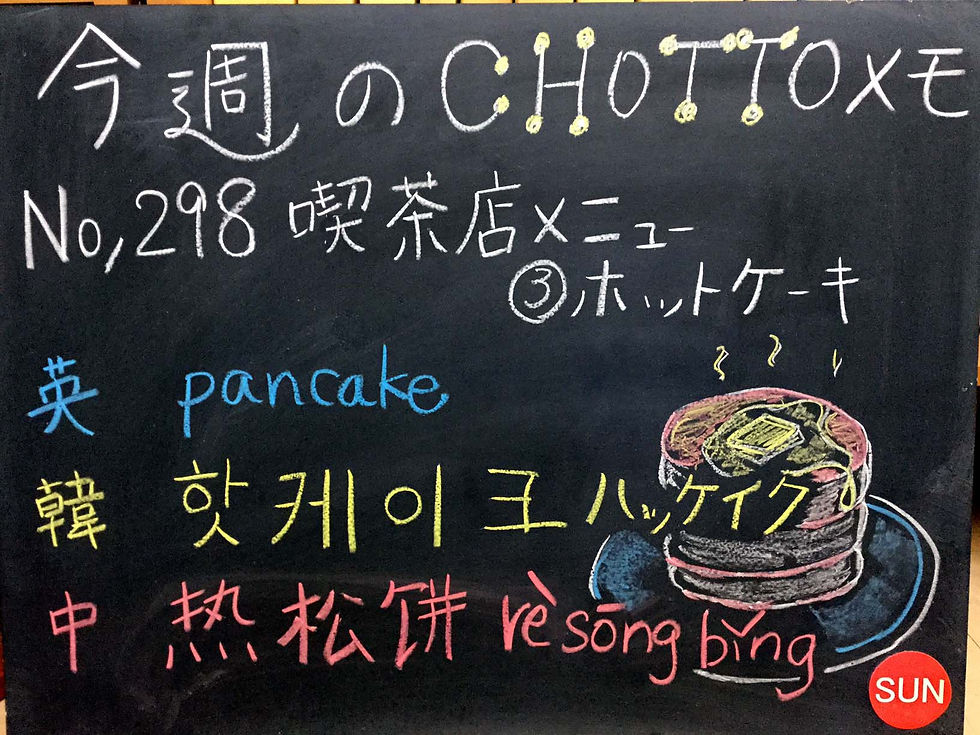 今週のCHOTTOメモ
No,298 喫茶店メニュー
③ホットケーキ
英 pancake
韓 핫케이크 ハッケイク
中 热松饼 rè sōng bǐng
SUN